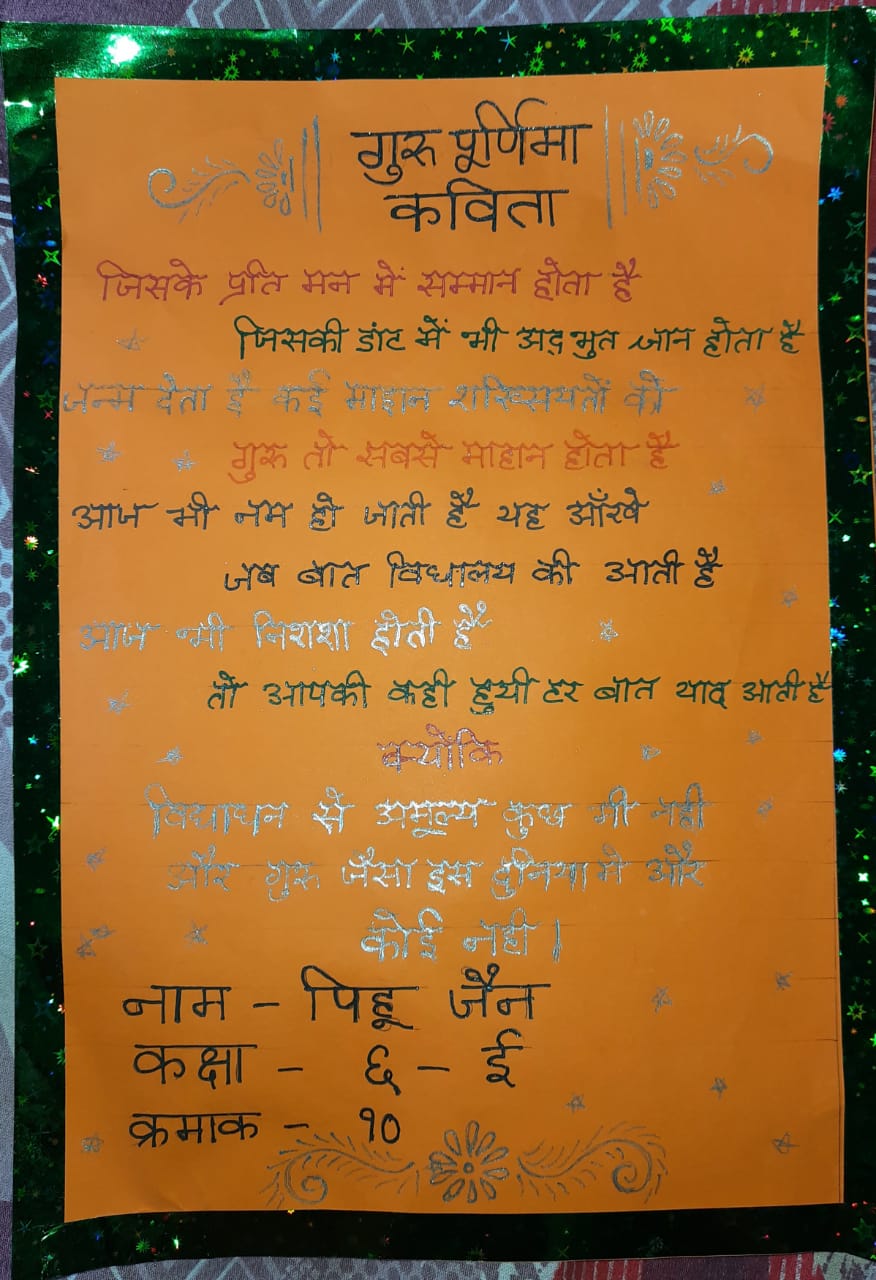 गुरु पूर्णिमा
कविता
जिसके प्रति मन में सम्मान होता है
जिसकी डांट में भी अद्भुत ज्ञान होता है
जन्म देता है कई माहान शख्सियतों को
गुरु तो सबसे माहान होता है
आज भी नम हो जाती है यह आँखे
जब बात विधालय की आती है
आज भी निराशा होती है
तो आपकी कही हुयी हर बात याद आती है
क्योंकि
विद्याधन से अमूल्य कुछ भी नही
और गुरु जैसा इस दुनिया मे और
कोई नही।
नाम - पिहू जैन
कक्षा - ६ - ई
क्रमाक - १०